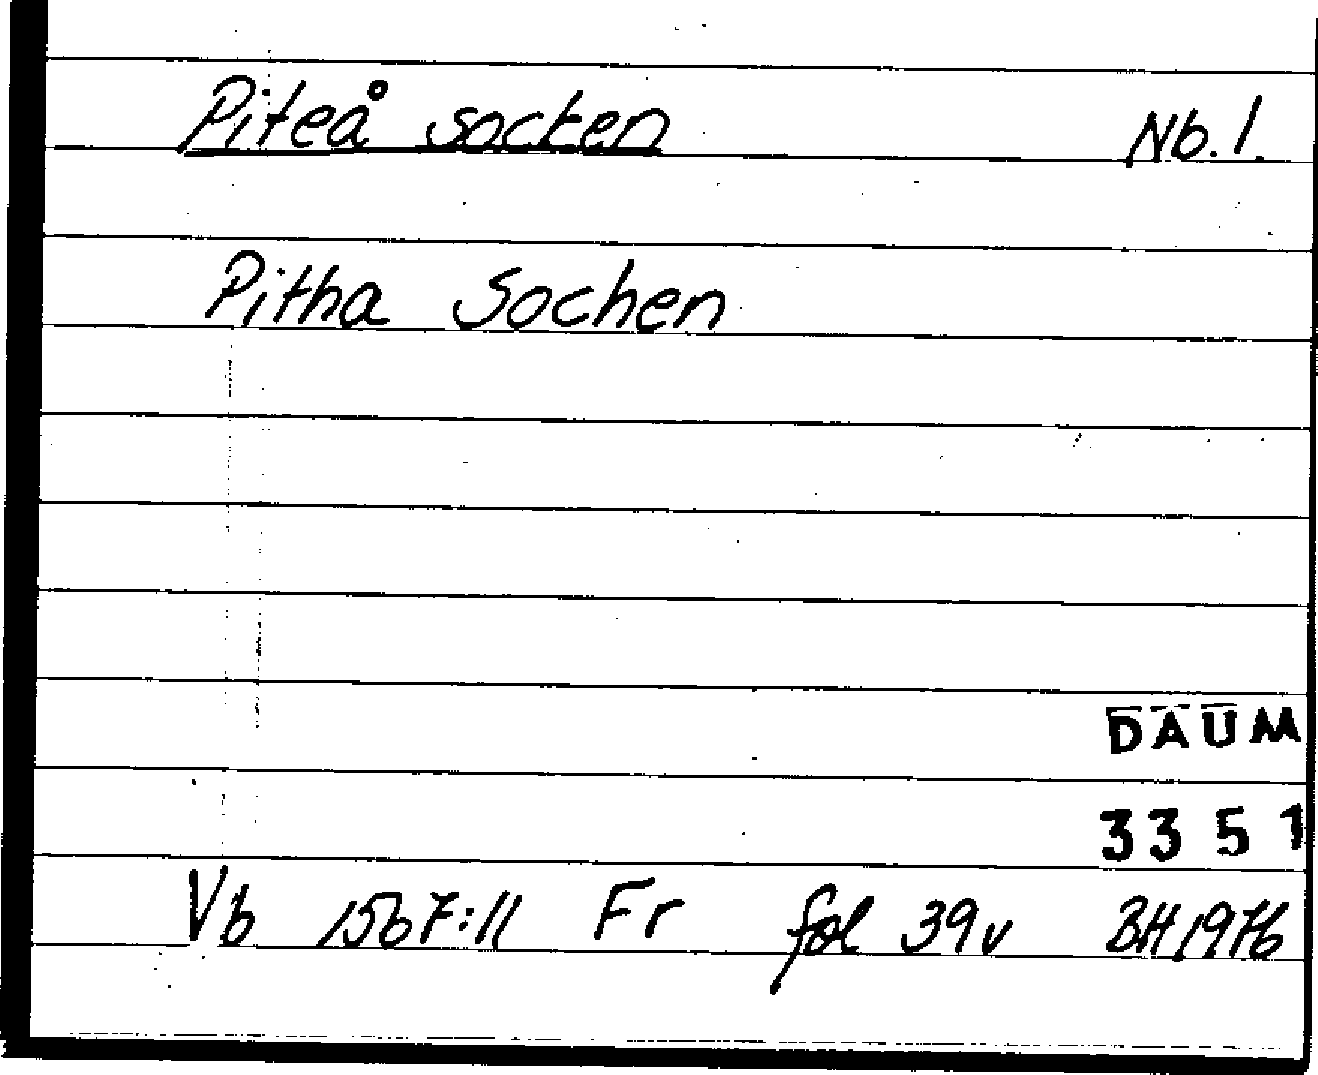 Piteå socken Nb. 1.
Pitha Sochen
DAUM
3351
Vb 1567:11 Fr fol 39v BH 1976